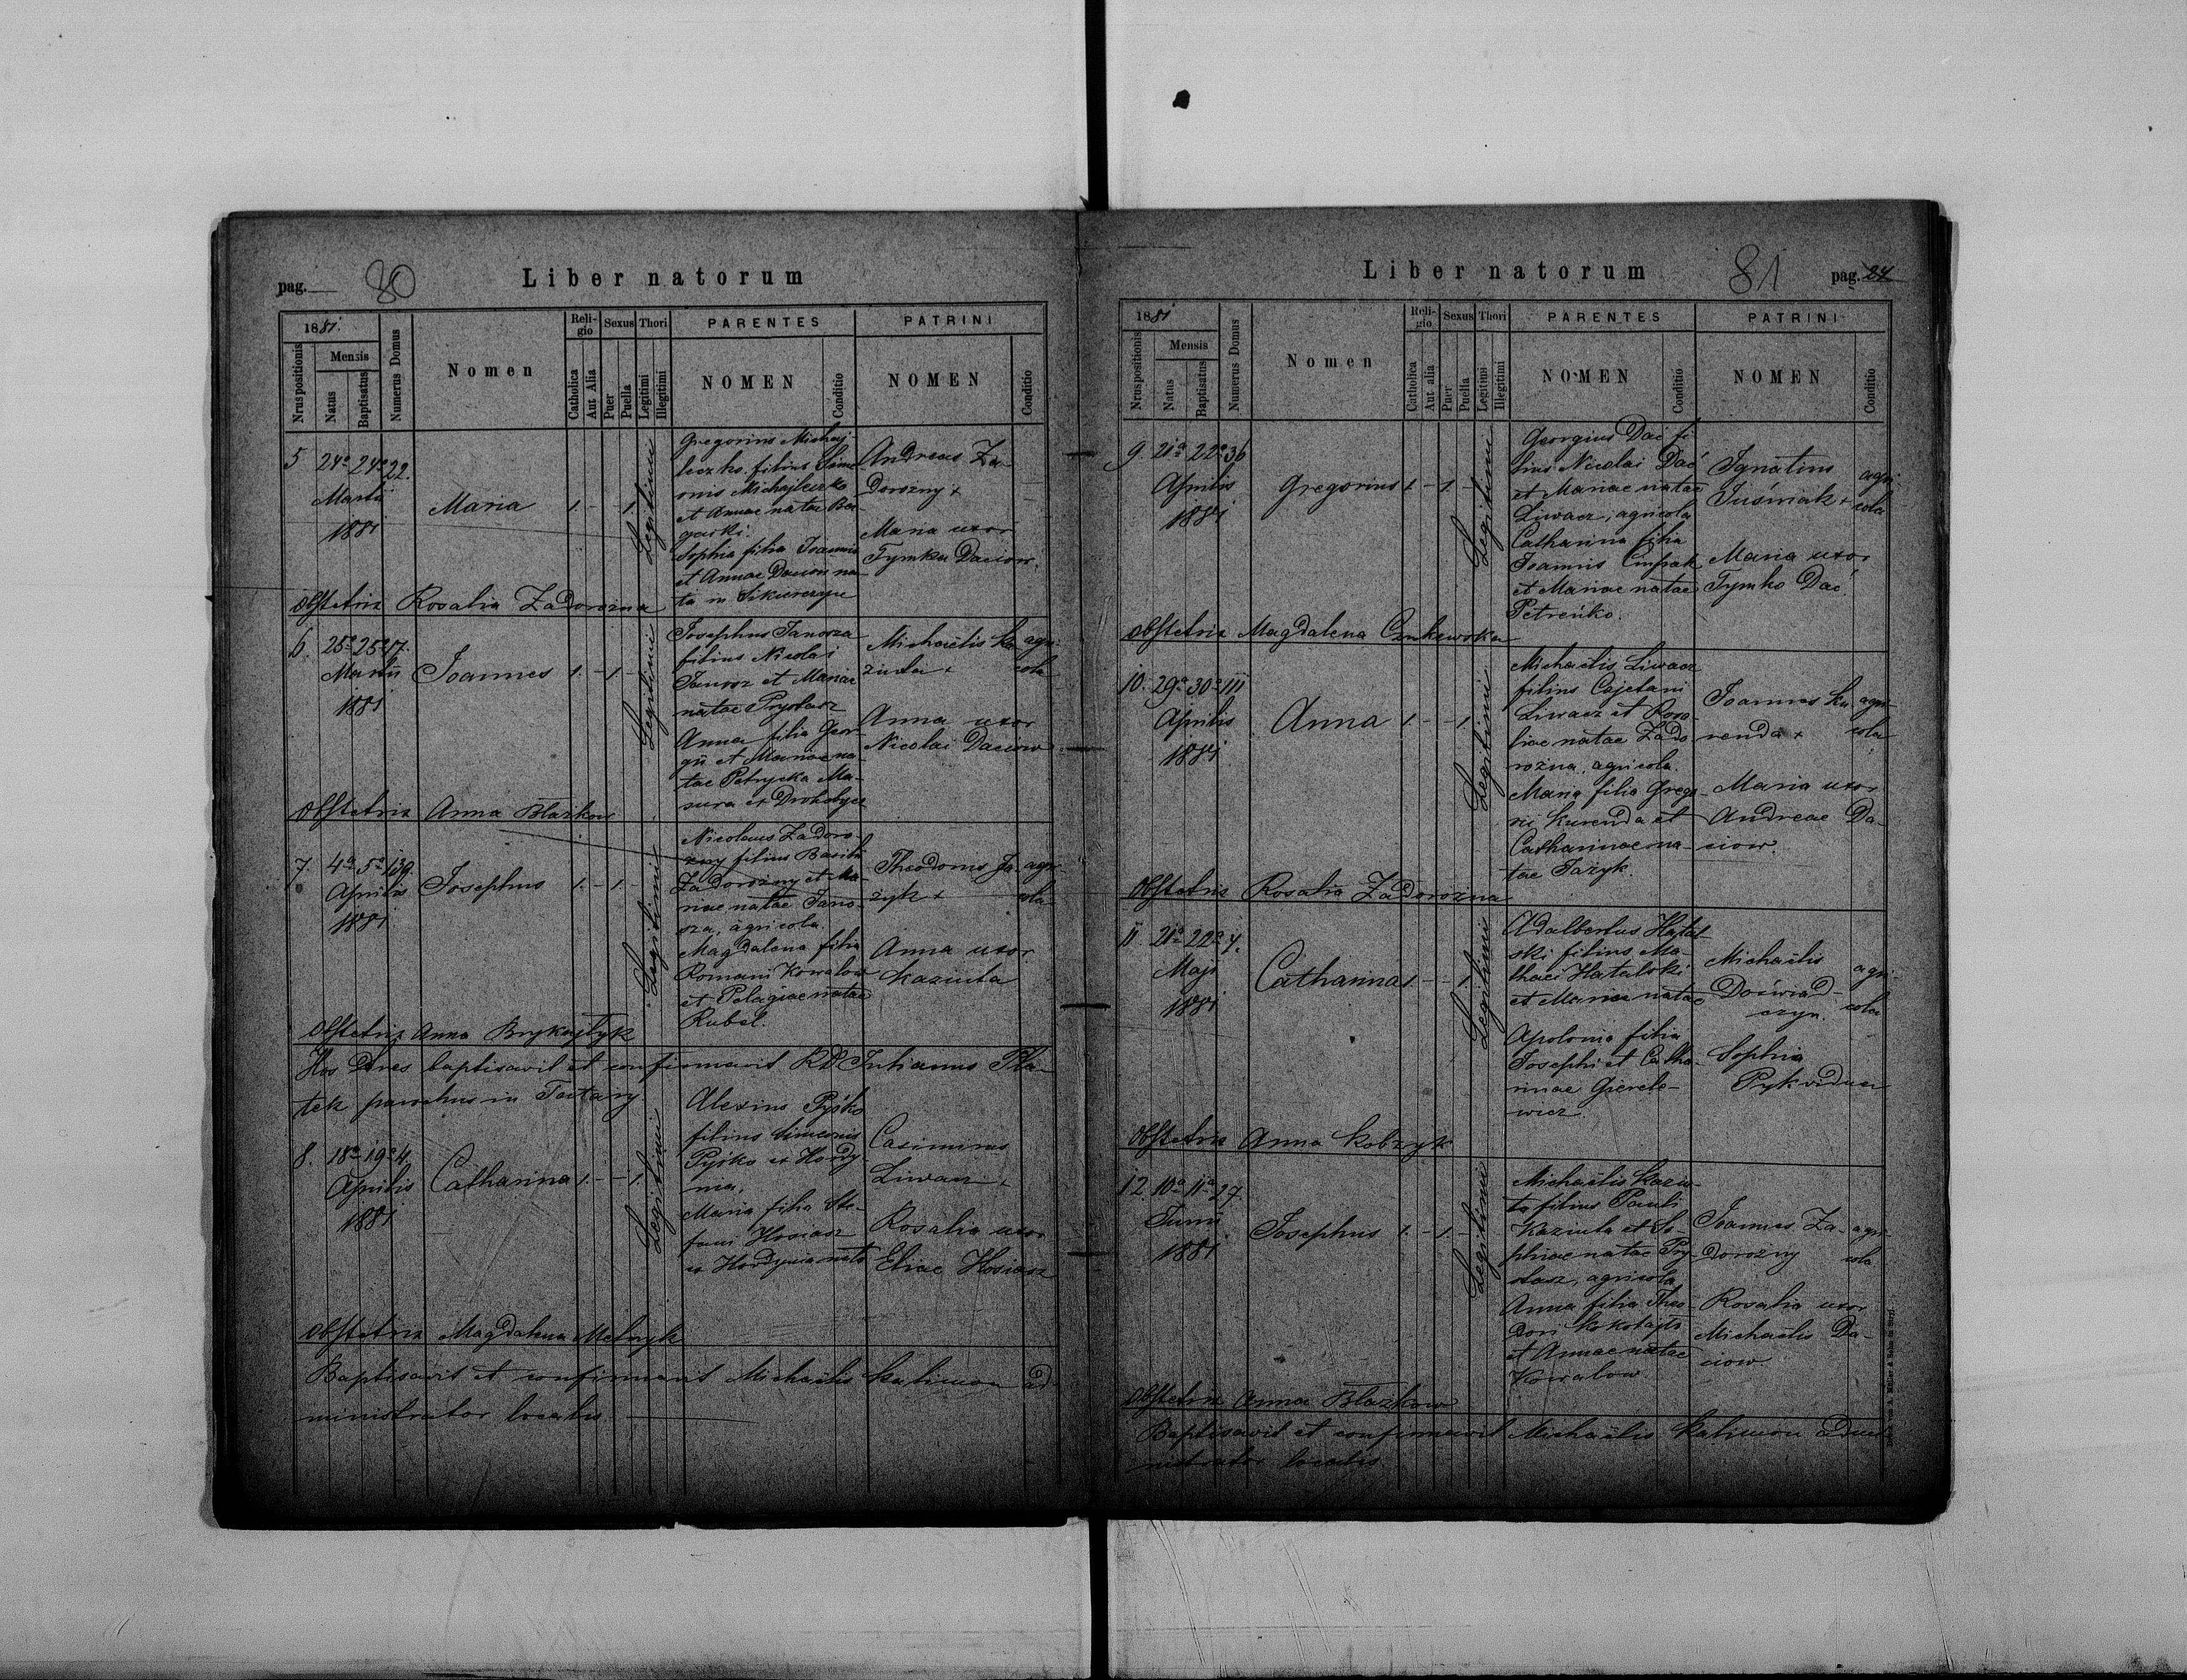 pag. 80
Liber natorum
1881.
Nrus positionis
Mensis
Natus
Baptisatus
Numerus Domus
Nomen
Religio
Catholica
Aut Alia
Sexus
Puer
Puella
Thori
Legitimi
Illegitimi
PARENTES
NOMEN
Conditio
PATRINI
NOMEN
Conditio
5 24a 24a 22.
Martii
1881
Maria
1. - 1.
Legitimi
Gregorius Michaj-
leczko filius Sime-
onis Michajleczko
et Annae natae
Sophia filia Joannis
et Annae Daciow na-
ta in
Andreas Za-
dorożny +
Maria uxor
Tymka Daciow.
Obstetrix Rosalia Zadorożna
6. 25a 25a 17.
Martii
1881
Joannes
1. - 1.
Legitimi
Josephus Janosza
filius Nicolai
Janosz et Mariae
natae Prystasz
Anna filia Geor-
gii et Mariae na-
tae Petrycka Ma-
zura ex Drohobycz
Michaëlis Ka-
ziuta +
agri-
cola
Anna uxor
Nicolai Daciow
Obstetrix Anna Błażkow
7. 4a 5a 139.
Aprilis
1881.
Josephus
1. - 1.
Legitimi
Nicolaus Zadoro-
żny filius Basilii
Zadorożny et Ma-
riae natae Jano-
sza, agricola.
Magdalena filia
Romani Kowalow
et Pelagiae natae
Rubel.
Theodorus Ja-
zyk +
agri-
cola
Anna uxor
Kaziuta
Obstetrix Anna Brykajłyk
Hos Tres baptisavit et confirmavit RD Julianus Pła-
tek parochus in Tatary
8. 18a 19a 4.
Aprilis
1881
Catharina
1. - - 1.
Legitimi
Alexius Pyśko
filius Simeonis
Pyśko ex Hordy-
nia,
Maria filia Ste-
fani Hosiasz
ex Hordynia nata
Casimirus
Liwacz +
Rosalia uxor
Eliae Hosiasz
Obstetrix Magdalena Melnyk
Baptisavit et confirmavit Michaëlis Kalimon ad-
ministrator localis
Liber natorum
81
pag. 24
1881
Nrus positionis
Mensis
Natus
Baptisatus
Numerus Domus
Nomen
Religio
Catholica
Aut alia
Sexus
Puer
Puella
Thori
Legitimi
Illegitimi
PARENTES
NOMEN
Conditio
PATRINI
NOMEN
Conditio
9. 21a 22a 36
Aprilis
1881
Gregorius
1. - 1. -
Legitimi
Georgius Dać fi-
lius Nicolai Dać
et Mariae natae
Liwacz, agricola
Catharina filia
Joannis
et Mariae natae
Petreńko.
Ignatius
Juśniak +
agri-
cola
Maria uxor
Tymko Dać.
Obstetrix Magdalena
10. 29a 30a 111
Aprilis
1881
Anna
1. - - 1.
Legitimi
Michaëlis Liwacz
filius Cajetani
Liwacz et Rosa-
liae natae Zado-
rożna, agricola.
Maria filia Grego-
rii Kurenda et
Catharinae na-
tae Jazyk.
Joannes Ku-
renda +
agri-
cola
Maria uxor
Andreae Da-
ciow.
Obstetrix Rosalia Zadorożna
11 21a 22a 4.
Maji
1881
Catharina
1. - - 1.
Legitimi
Adalbertus Hatal-
ski filius Ma-
thaei Hatalski
et Mariae natae
Apolonia filia
Josephi et Catha-
rinae Gierele-
wicz.
Michaëlis
Doświad-
czyn.
agri-
cola
Sophia
Pyk vidua
Obstetrix Anna Kobzyk
12. 10a 11a 27.
Junii
1881
Josephus
1. - 1. -
Legitimi
Michaëlis Kaziu-
ta filius Pauli
Kaziuta et So-
phiae natae Pry-
stasz, agricola,
Anna filia Theo-
dori Kokotajło
et Annae natae
Kowalow
Joannes Za-
dorożny
agri-
cola.
Rosalia uxor
Michaëlis Da-
ciow
Obstetrix Anna Błażkow
Baptisavit et confirmavit Michaëlis Kalimon admi-
nistrator localis.